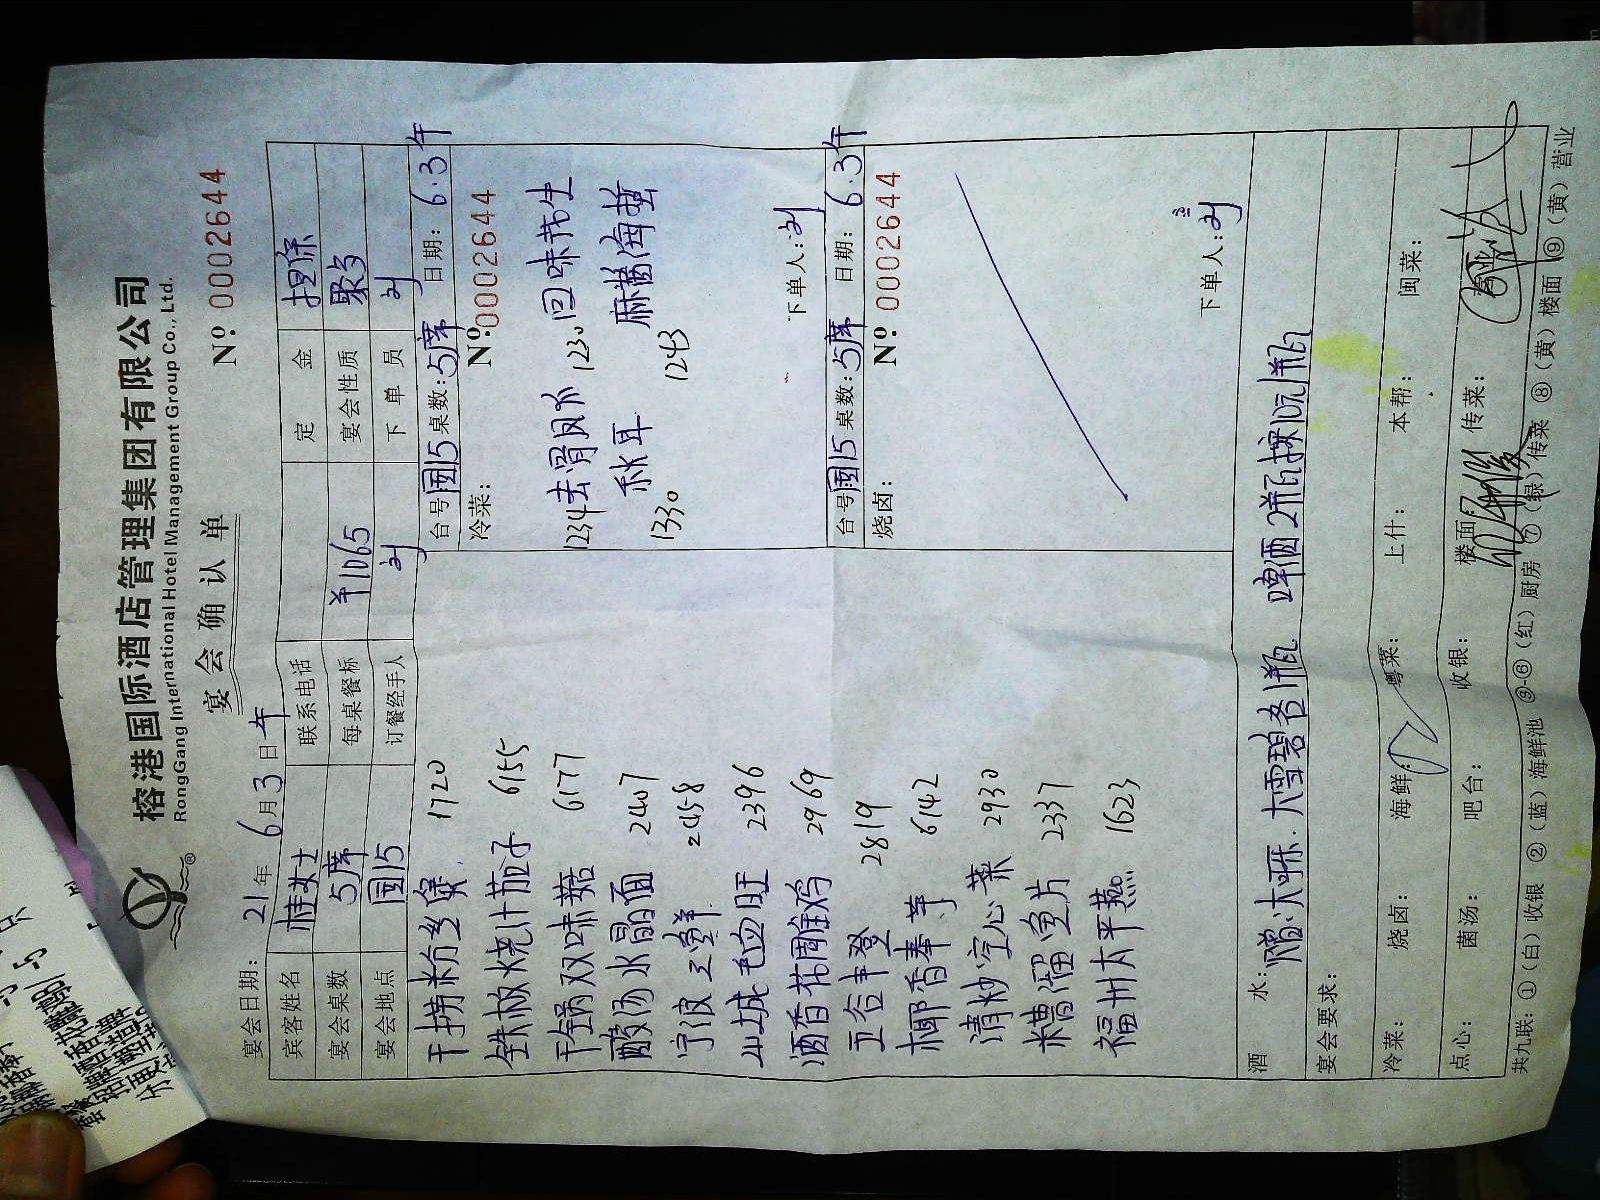 榕港国际酒店管理集团有限公司
RongGang International Hotel Management Group Co., Ltd.
宴会确认单
№ 0002644
宴会日期: 21年6月3日午
宾客姓名 桂女士 联系电话 定金 担保
宴会桌数 5席 每桌餐标 ¥1065 宴会性质 聚多
宴会地点 国15 订餐经手人 刘 下单员 刘
干捞粉丝煲 1720
铁板烧汁茄子 6155
干锅双味菇 6177
酸汤水晶面 2407
宁波三鲜 2458
山城毛血旺 2396
酒香花雕鸡 2969
五谷丰登 2819
椰香奉芋 6142
清炒空心菜 2930
糟溜鱼片 2337
福州太平燕 1623
台号 国15 桌数: 5席 日期: 6.3午
冷菜: № 0002644
1234 去骨凤爪 1230 回味花生
秋耳 1330 麻酱海蜇 1243
下单人: 刘
台号 国15 桌数: 5席 日期: 6.3午
烧卤: № 0002644
下单人: 刘
酒水: 赠:大可乐.大雪碧各1瓶 啤酒2瓶
宴会要求:
冷菜: 烧卤: 海鲜: 粤菜: 上什: 本帮: 闽菜:
点心: 菌汤: 吧台: 收银: 楼面: 传菜:
共九联: ①(白)收银 ②(蓝)海鲜池 ③-⑥(红)厨房 ⑦(绿)传菜 ⑧(黄)楼面 ⑨(黄)营业